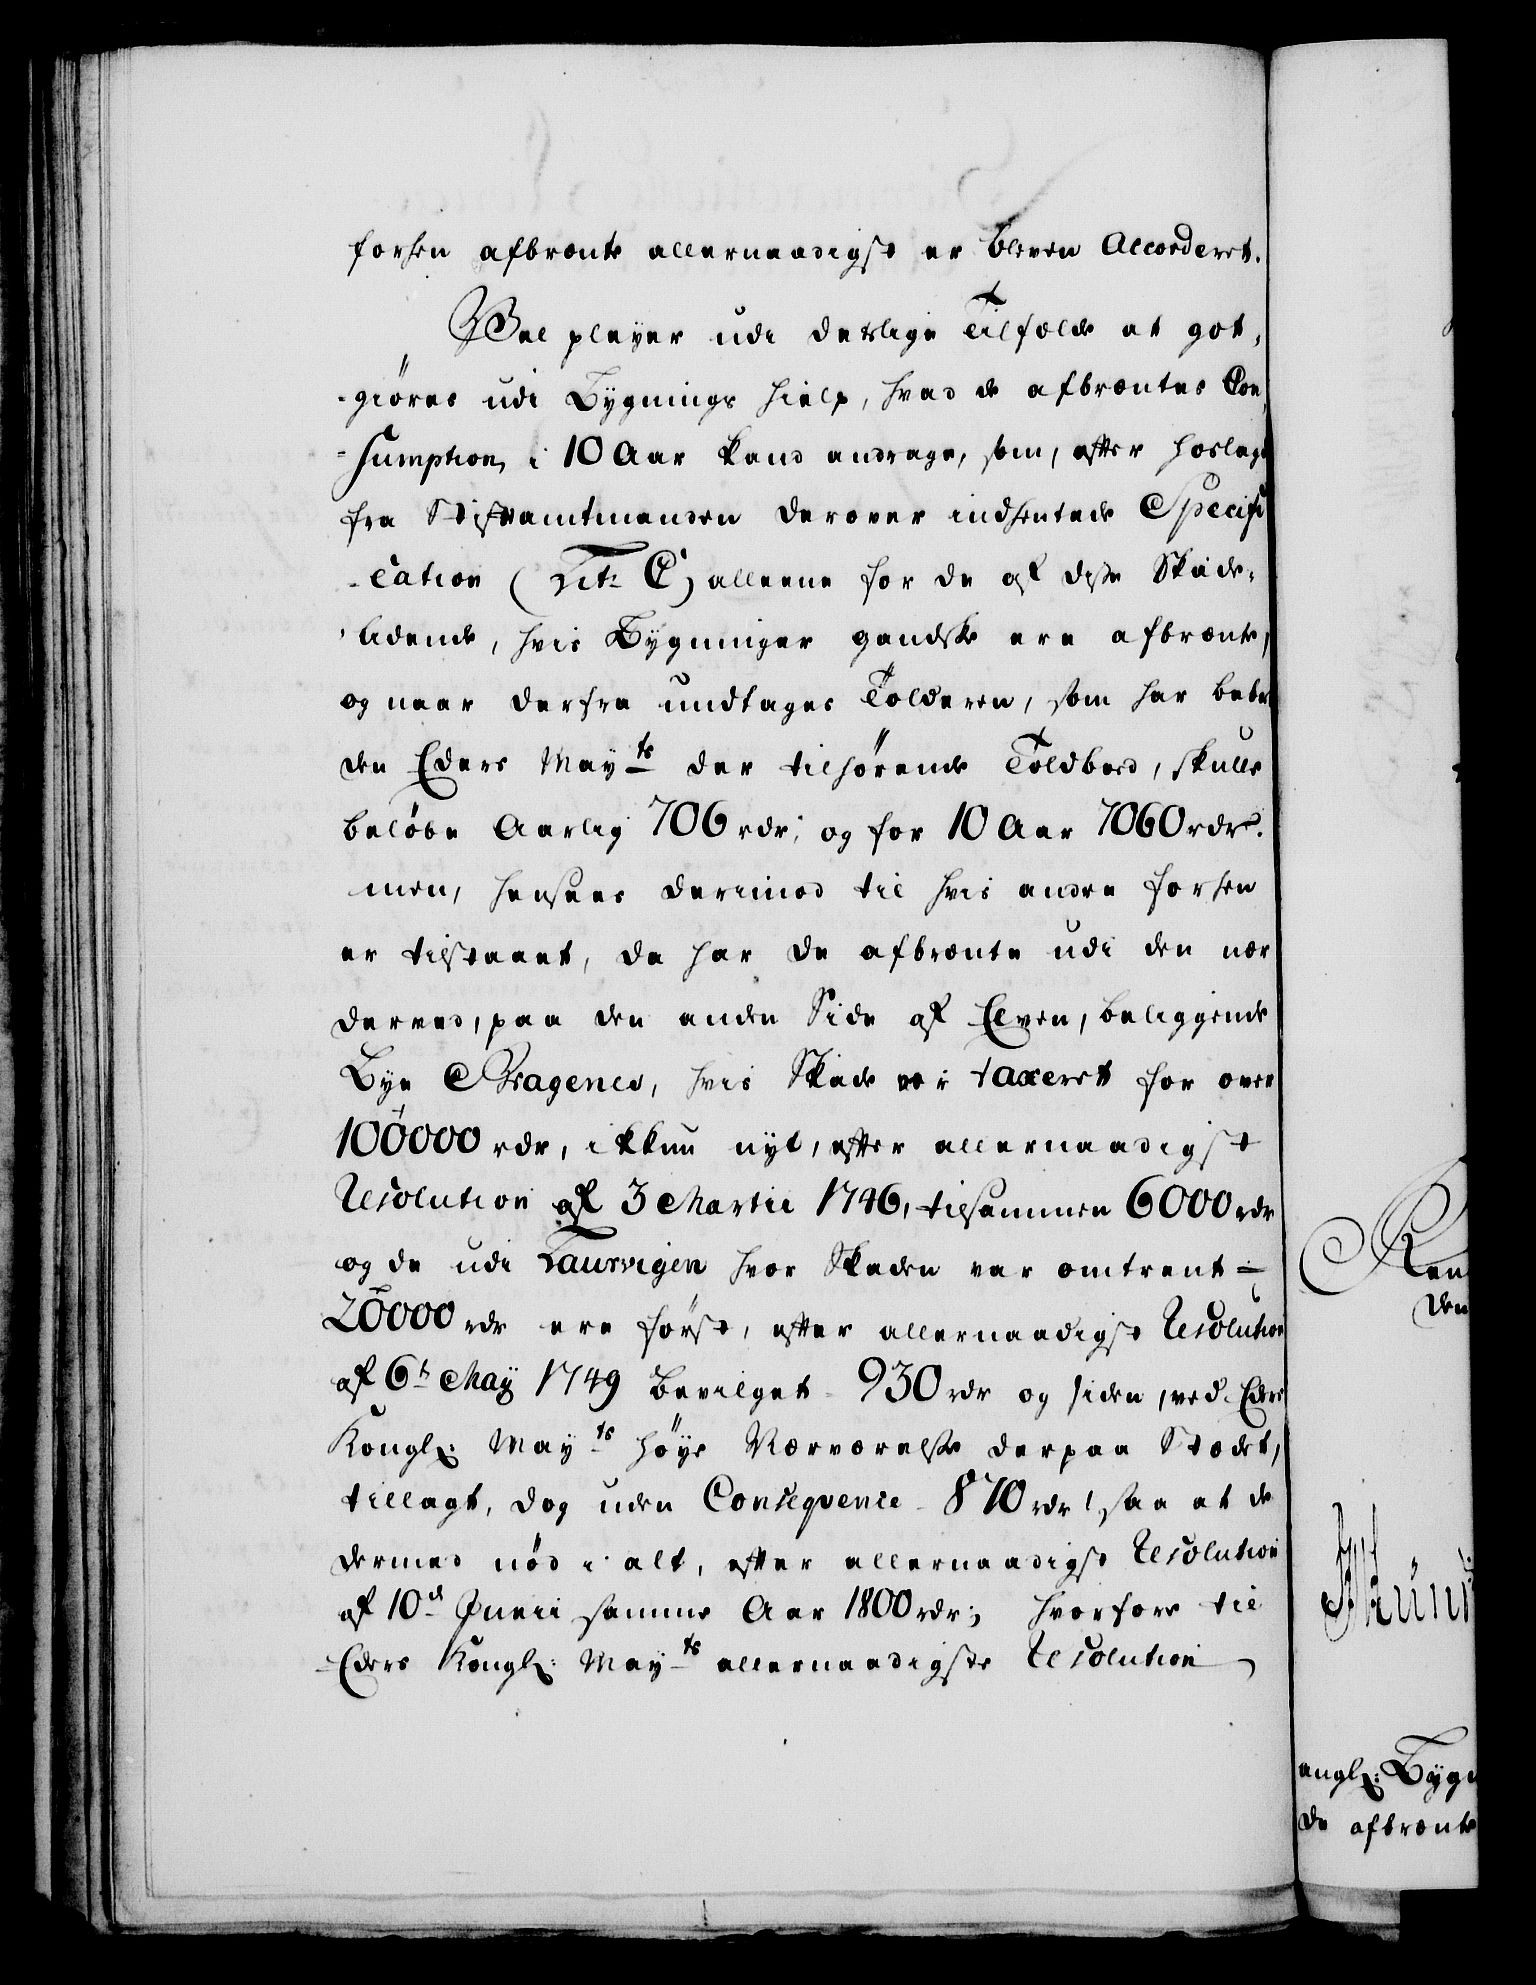 forhen afbrænte allernaadigst er bleven Accorderet.
Vel pleyer udi deslige Tilfælde at got-
-giøres udi Bygnings hielp, hvad de afbræntes Con-
-sumption i 10 Aar kand andrage, som, efter hoslagt
fra Stiftamtmanden derover indhentede Specifi
-cation (Litr C) alleene for de af disse Skade-
lidende, hvis Bygninger gandske ere afbrænte,
og naar derfra undtages Tolderen, som har beboe
den Eders Mayts der tilhørende Toldboed, skulle
beløbe Aarlig 706 rdr; og for 10 Aar 7060 rdr.
men, hensees derimod til hvis andre forhen
er tilstaaet, da har de afbrænte udi den nær
derved, paa den anden Side af Elven, beliggende
Bye Bragenes, hvis Skade er taxeret for over
100000 rdr, ikkun nyt, efter allernaadigst
Resolution af 3 Martii 1746, tilsammen 6000 rdr
og de udi Laurvigen hvor Skaden var omtrent -
20000 rdr ere først, efter allernaadigst Resolution
af 6te May 1749 bevilget 930 rdr og siden, ved Eders
Kongl: Mayts høye Nærværelse derpaa Stædet,
tillagt, dog uden Conseqvence 870 rdr, saa at de
dermed nød i alt, efter allernaadigst Resolution
af 10de Junii samme Aar 1800 rdr; hvorfore til
Eders Kongl: Mayts allernaadigste Resolution
den
angl: Bygn
de afbrænte